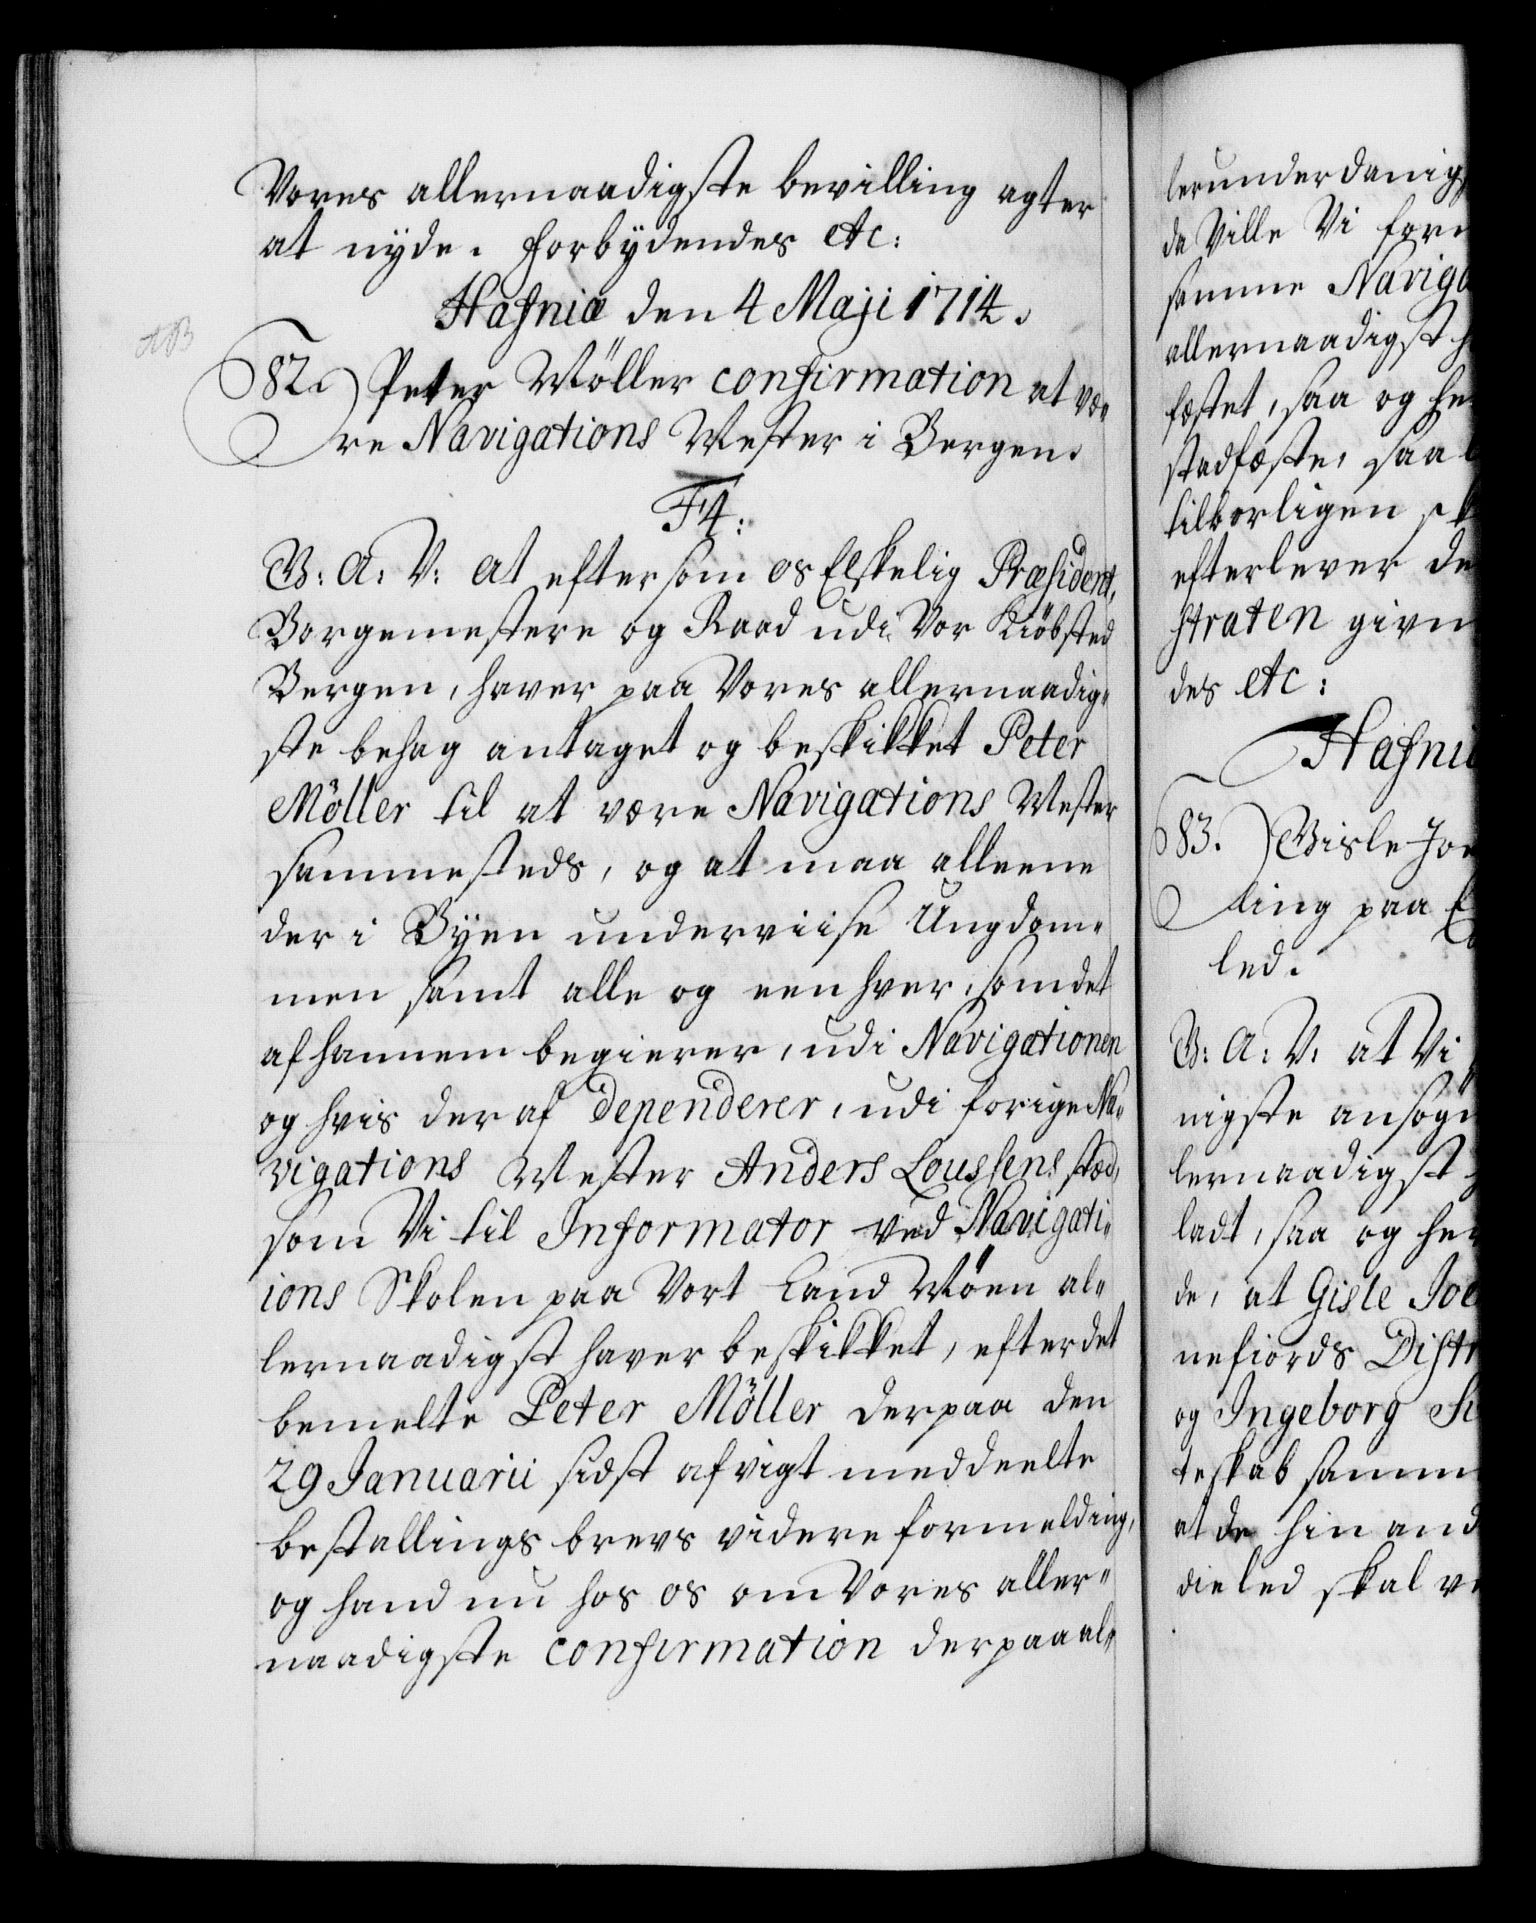 Vores allernaadigste bevilling agter
at nyde. Forbydendes etc:
Hafniæ den 4 Maji 1714.
82.) Peter Möller confirmation at væ„
re Navigations Mester i Bergen.
F4:
G: A: V: at eftersom os Elskelig Præsident,
Borgemestere og Raad udi Vor Kiöbsted
Bergen, haver paa Vores allernaadig„
ste behag antaget og beskikket Peter
Möller til at være Navigations Mester
sammesteds, og at maa alleene
der i Byen underviise Ungdom„
men samt alle og een hver, som det
af hannem begierer, udi Navigationen
og hvis der af dependerer, udi forige Na„
vigations Mester Anders Loussens stæd,
som Vi til Informator ved Navigati„
ions Skolen paa Vort Land Möen al„
lernaadigst haver beskikket, efter det
bemelte Peter Möller derpaa den
29 Januarii sidst afvigt meddeelte
bestallings brevs videre formelding,
og hand nu hos os om Vores aller„
naadigste confirmation derpaa al„
lerunderdanigst
da Ville Vi
samme
allernaadigst
fæstet, saa og
stadfæste, saa
tilbørligen
efterlever
straten
des etc:
83.)
ling paa
led.
G: A: V: at Vi
nigste
lernaadigst
ladt, saa og
de, at Gisle
nefiords
og Ingeborg
teskab
at de hin
die led skal